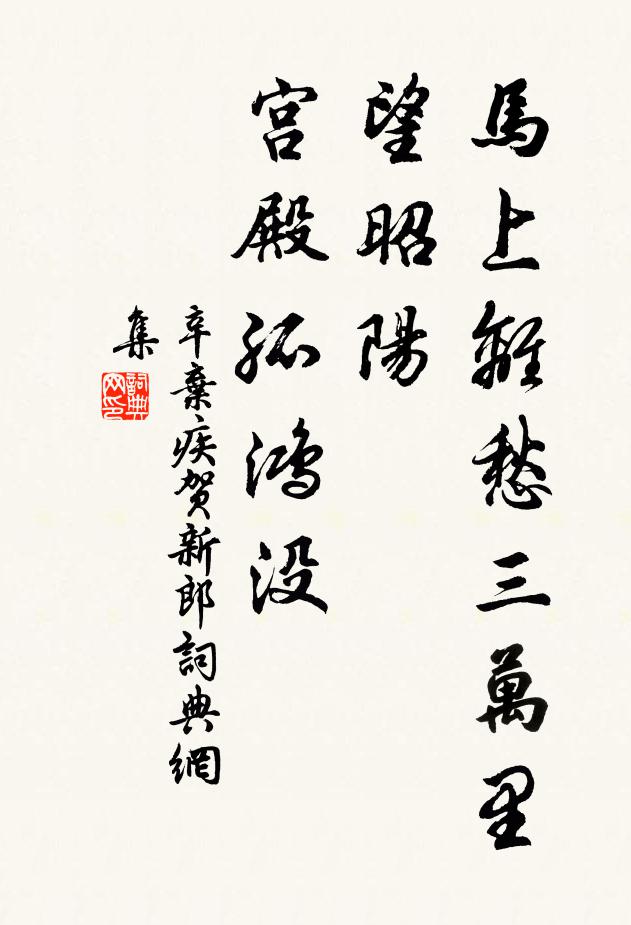 馬上離愁三萬里
望昭陽
宫殿孤鴻没
辛棄疾賀新郎詞典網
集
詞典網印